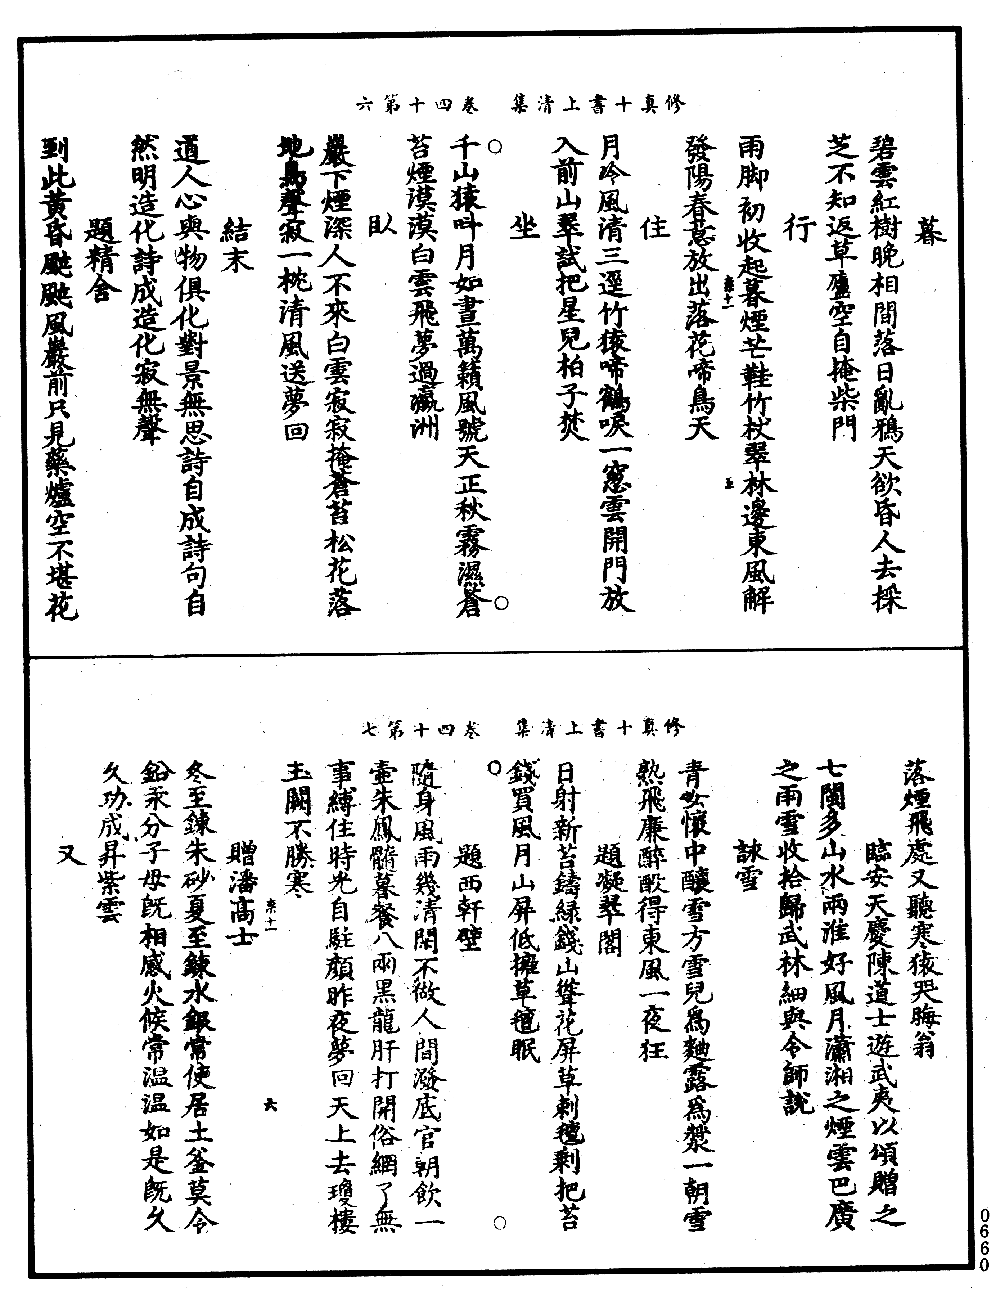 修真十書上清集　卷四十第六
暮
碧雲紅樹晚相間落日亂鴉天欲昏人去採
芝不知返草廬空自掩柴門
行
雨脚初收起暮煙芒鞋竹杖翠林邊東風解
發陽春意放出落花啼鳥天
住
月冷風清三逕竹猿啼鶴唳一窻雲開門放
入前山翠試把星兒柏子焚
坐
千山猿叫月如晝萬籟風號天正秋霧濕蒼
苔煙漠漠白雲飛夢過瀛洲
臥
巖下煙深人不來白雲寂寂掩蒼苔松花落
地鳥聲寂一枕清風送夢回
結末
道人心與物俱化對景無思詩自成詩句自
然明造化詩成造化寂無聲
題精舍
到此黃昏颭颭風巖前只見藥爐空不堪花
修真十書上清集　卷四十第七
落煙飛處又聽寒猿哭晦翁
臨安天慶陳道士遊武夷以頌贈之
七閩多山水兩淮好風月瀟湘之煙雲巴廣
之雨雪收拾歸武林細與令師說
詠雪
青女懷中釀雪方雪兒爲麯露爲漿一朝雪
熟飛廉醉酘得東風一夜狂
題凝翠閣
日射新苔鑄綠錢山聳花屏草刺氊剩把苔
錢買風月山屏低擁草氊眠
題西軒壁
隨身風雨幾清閑不做人間潑底官朝飲一
壺朱鳳髓暮餐八兩黑龍肝打開俗網了無
事縛住時光自駐顏昨夜夢回天上去瓊樓
玉闕不勝寒
贈潘高士
冬至鍊朱砂夏至鍊水銀常使居土釜莫令
鉛汞分子母既相感火候常溫溫如是既久
久功成昇紫雲
又
0660